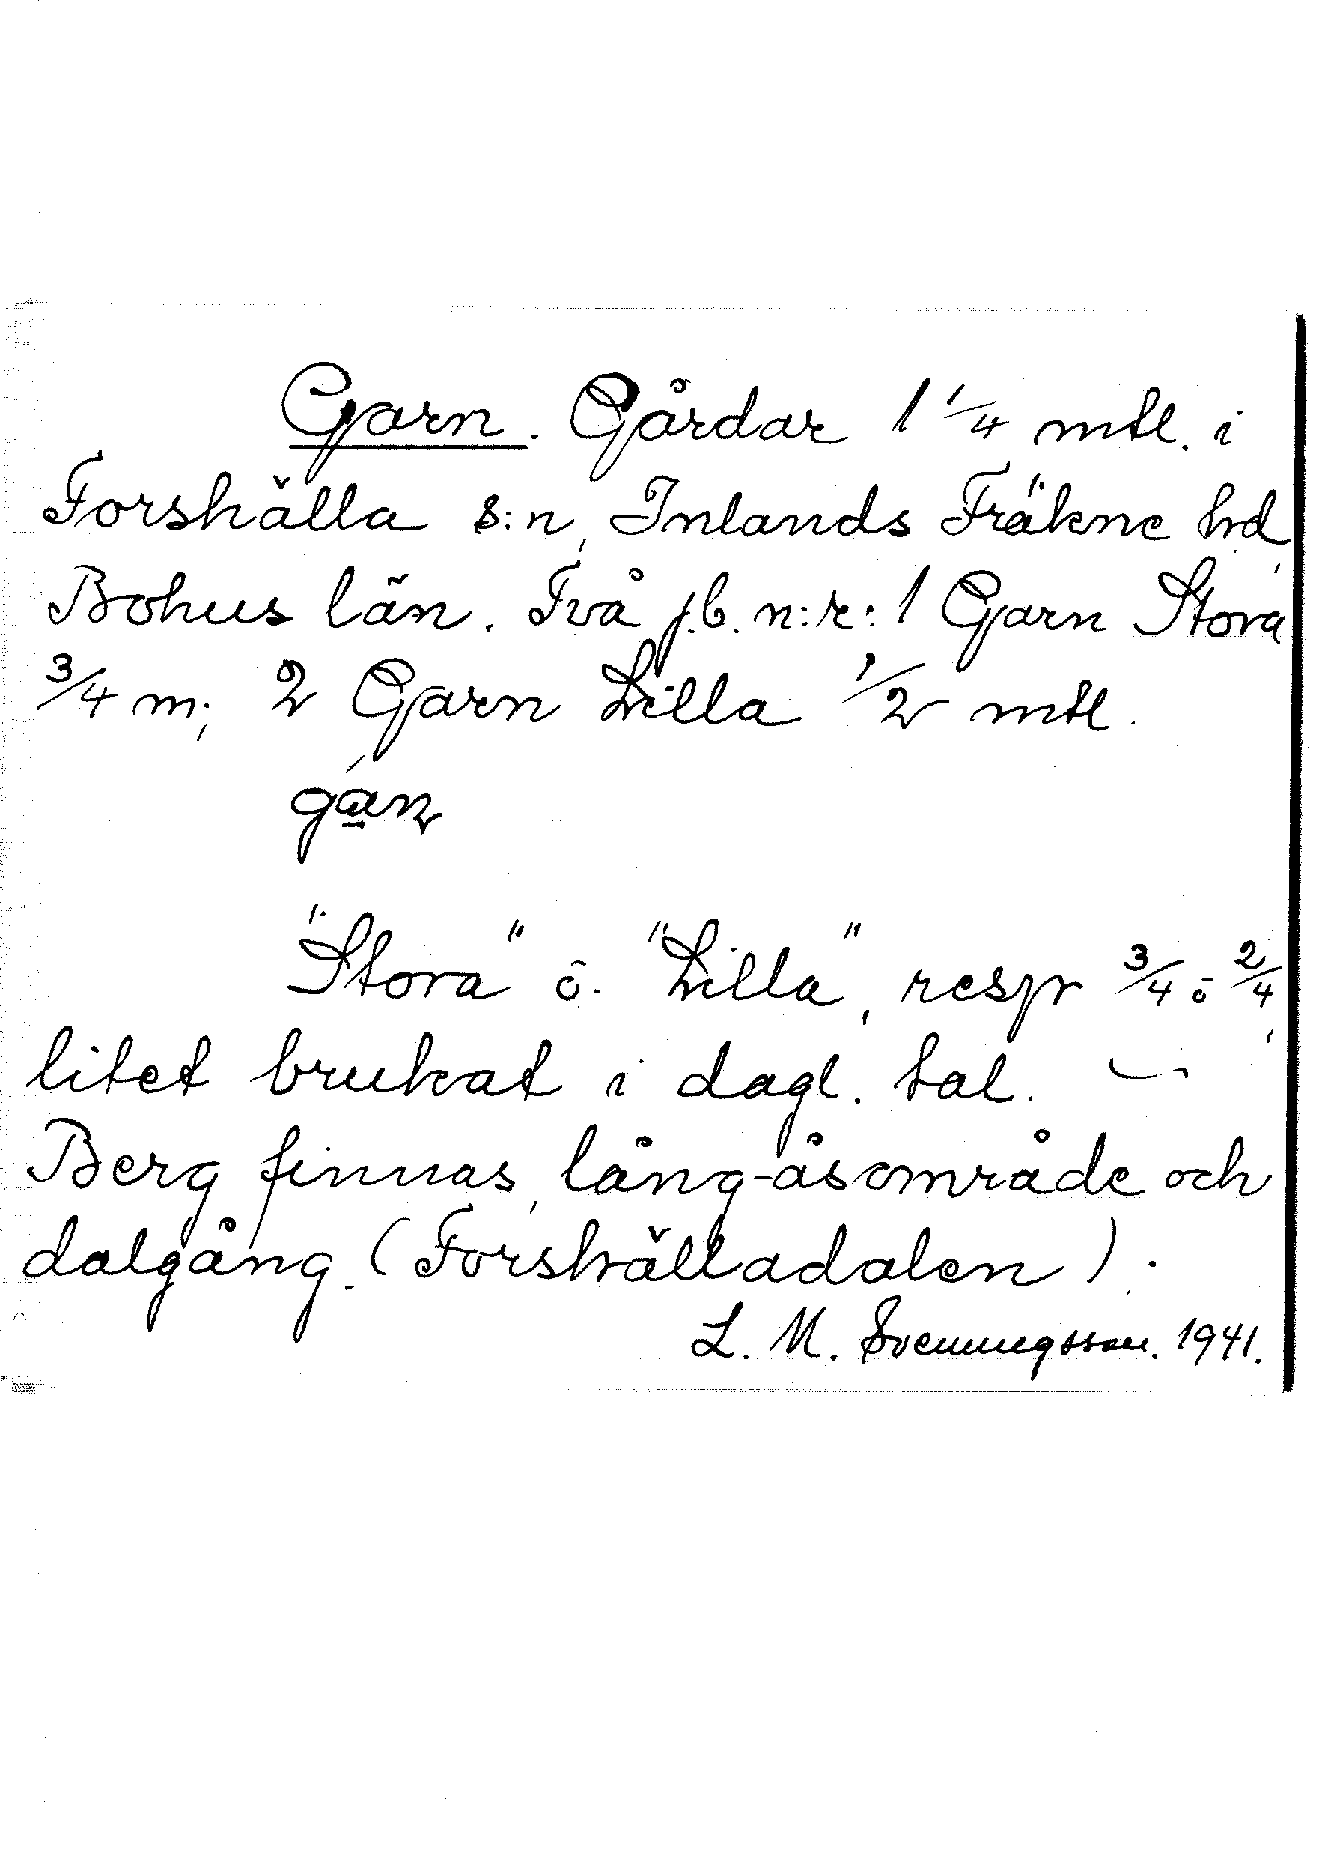 Garn. Gårdar 1 1/4 mtl. i
Forshälla s:n, Inlands Fräkne hd,
Bohus län. Två j.b. n:r: 1 Garn Stora
3/4 m; 2 Garn Lilla 1/2 mtl.
"Stora" o. "Lilla", resp 3/4 o 2/4,
litet brukat i dagl. tal. —
Berg finnas, lång-åsområde och
dalgång. (Forshälladalen).
L. M. Svenningsson. 1941.